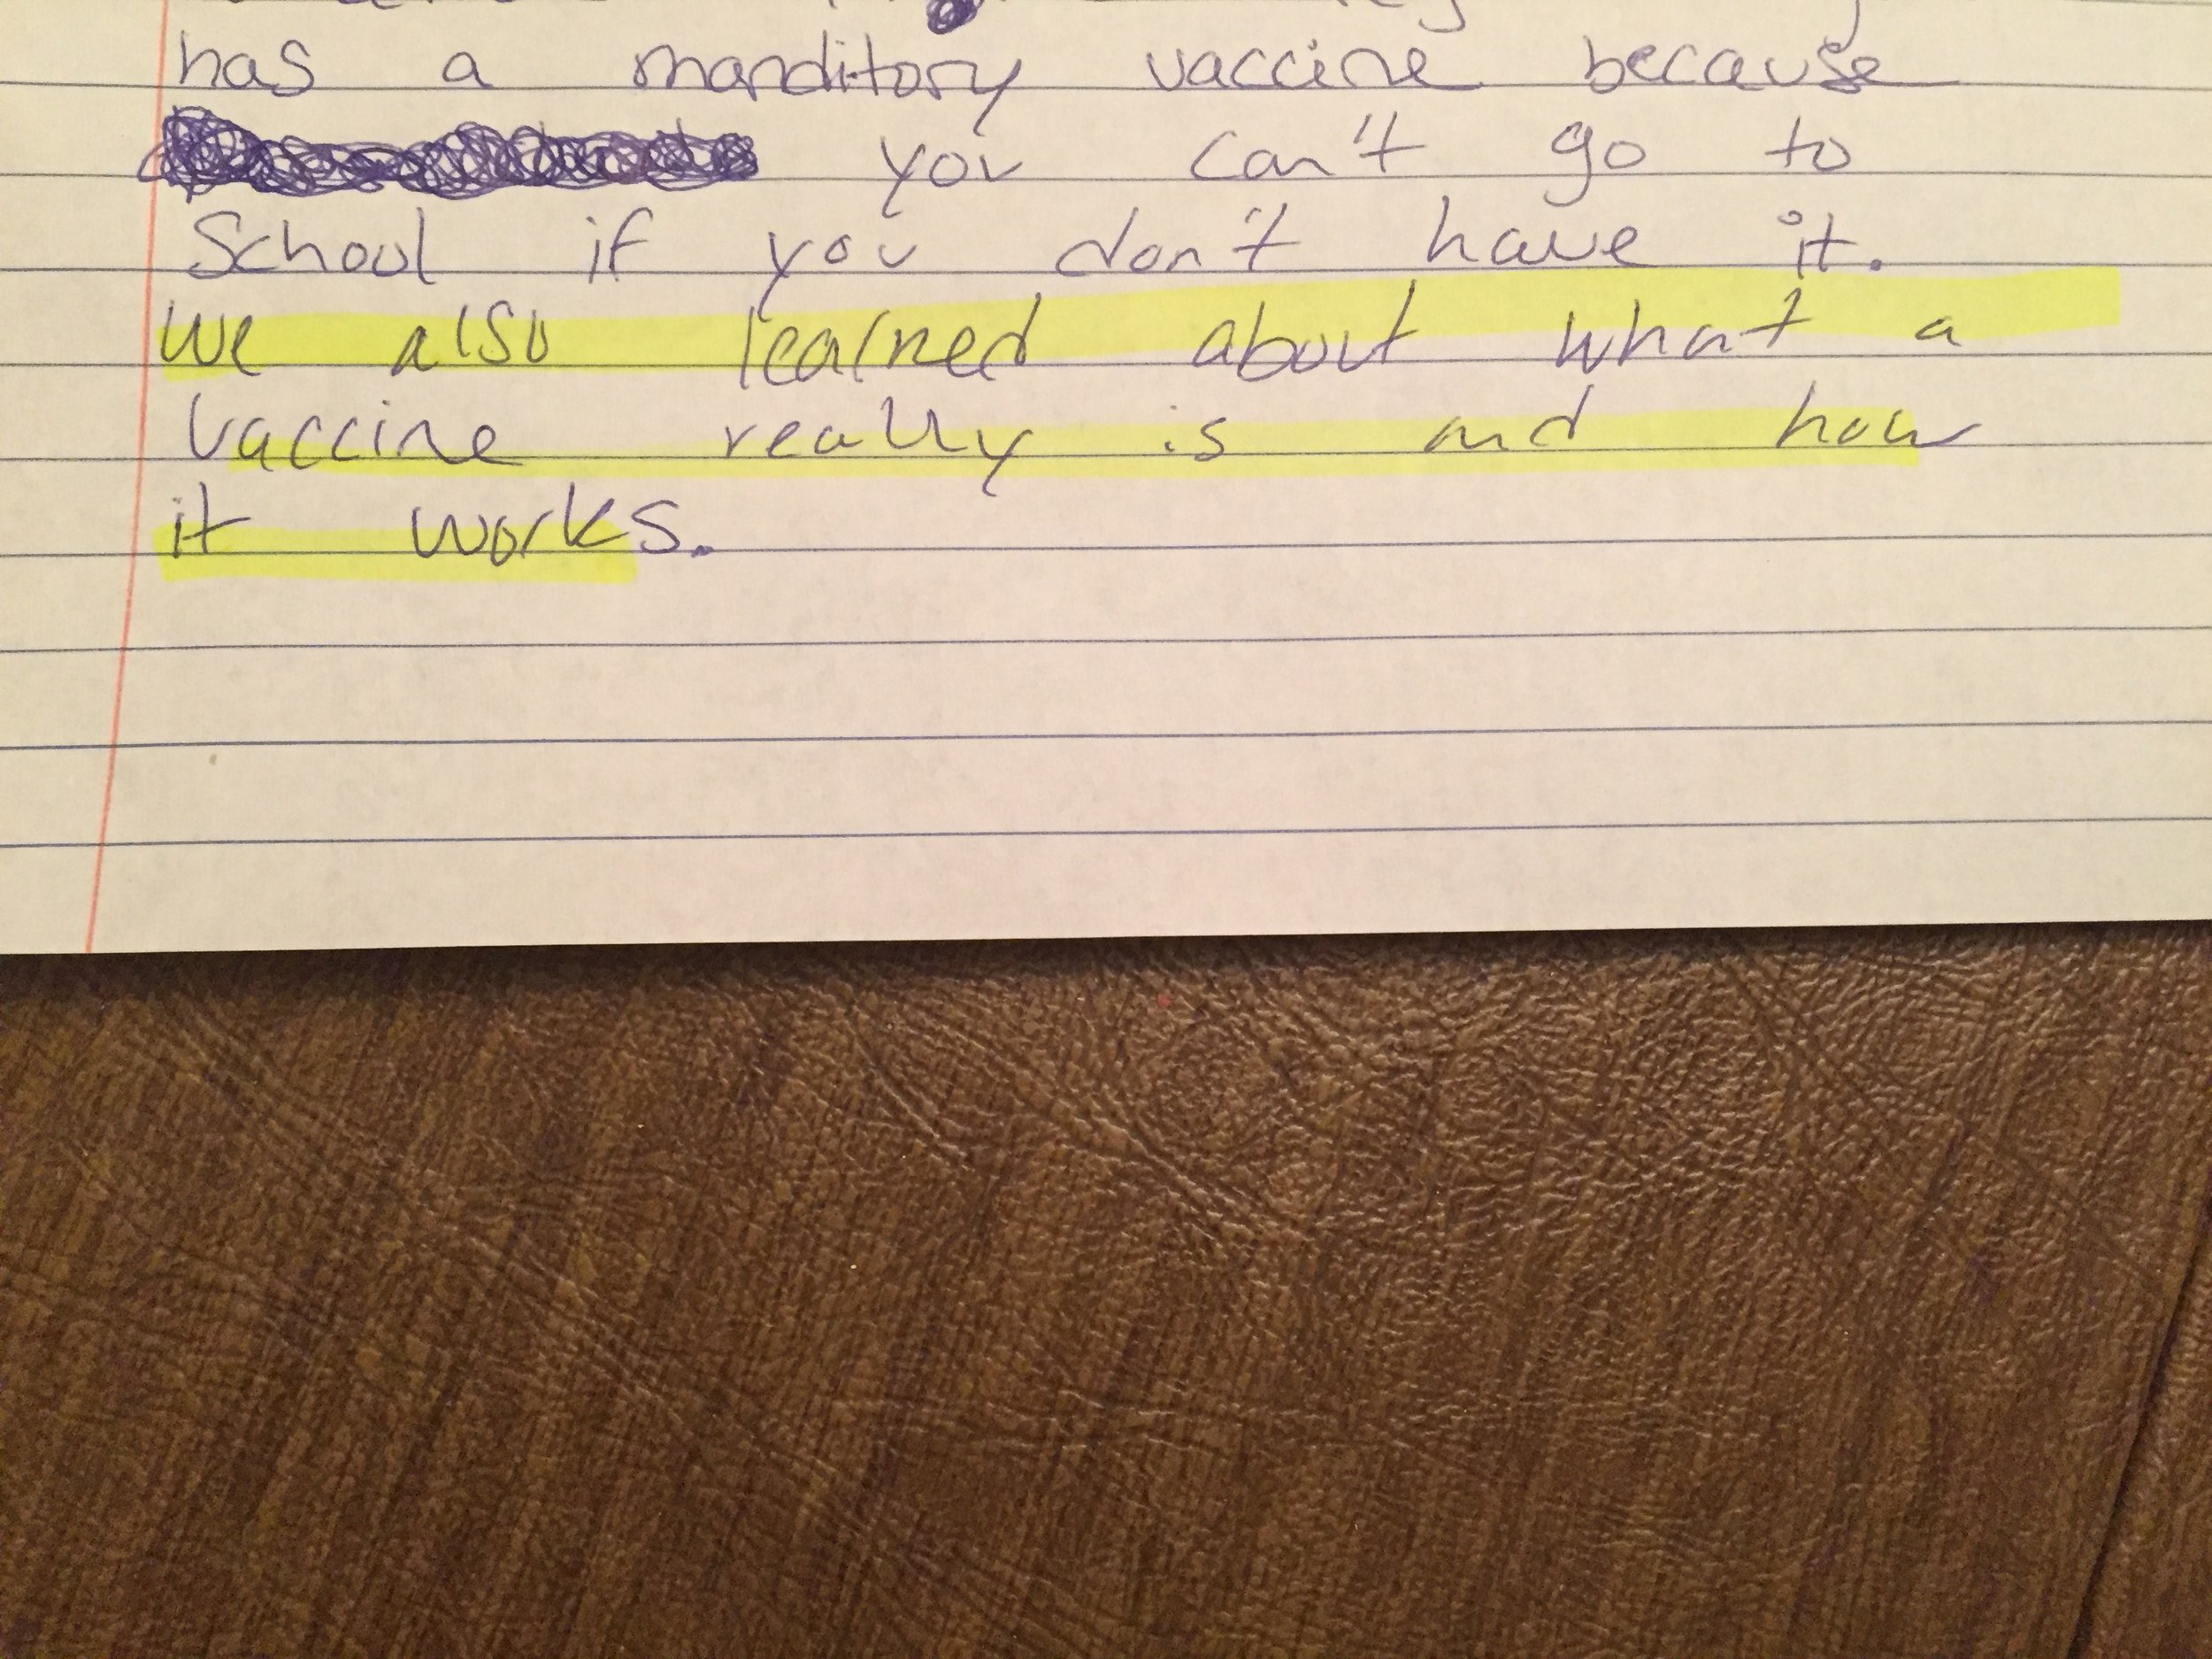 has a manditory vaccine because
you can't go to
School if you don't have it.
we also learned about what a
vaccine really is and how
it works.